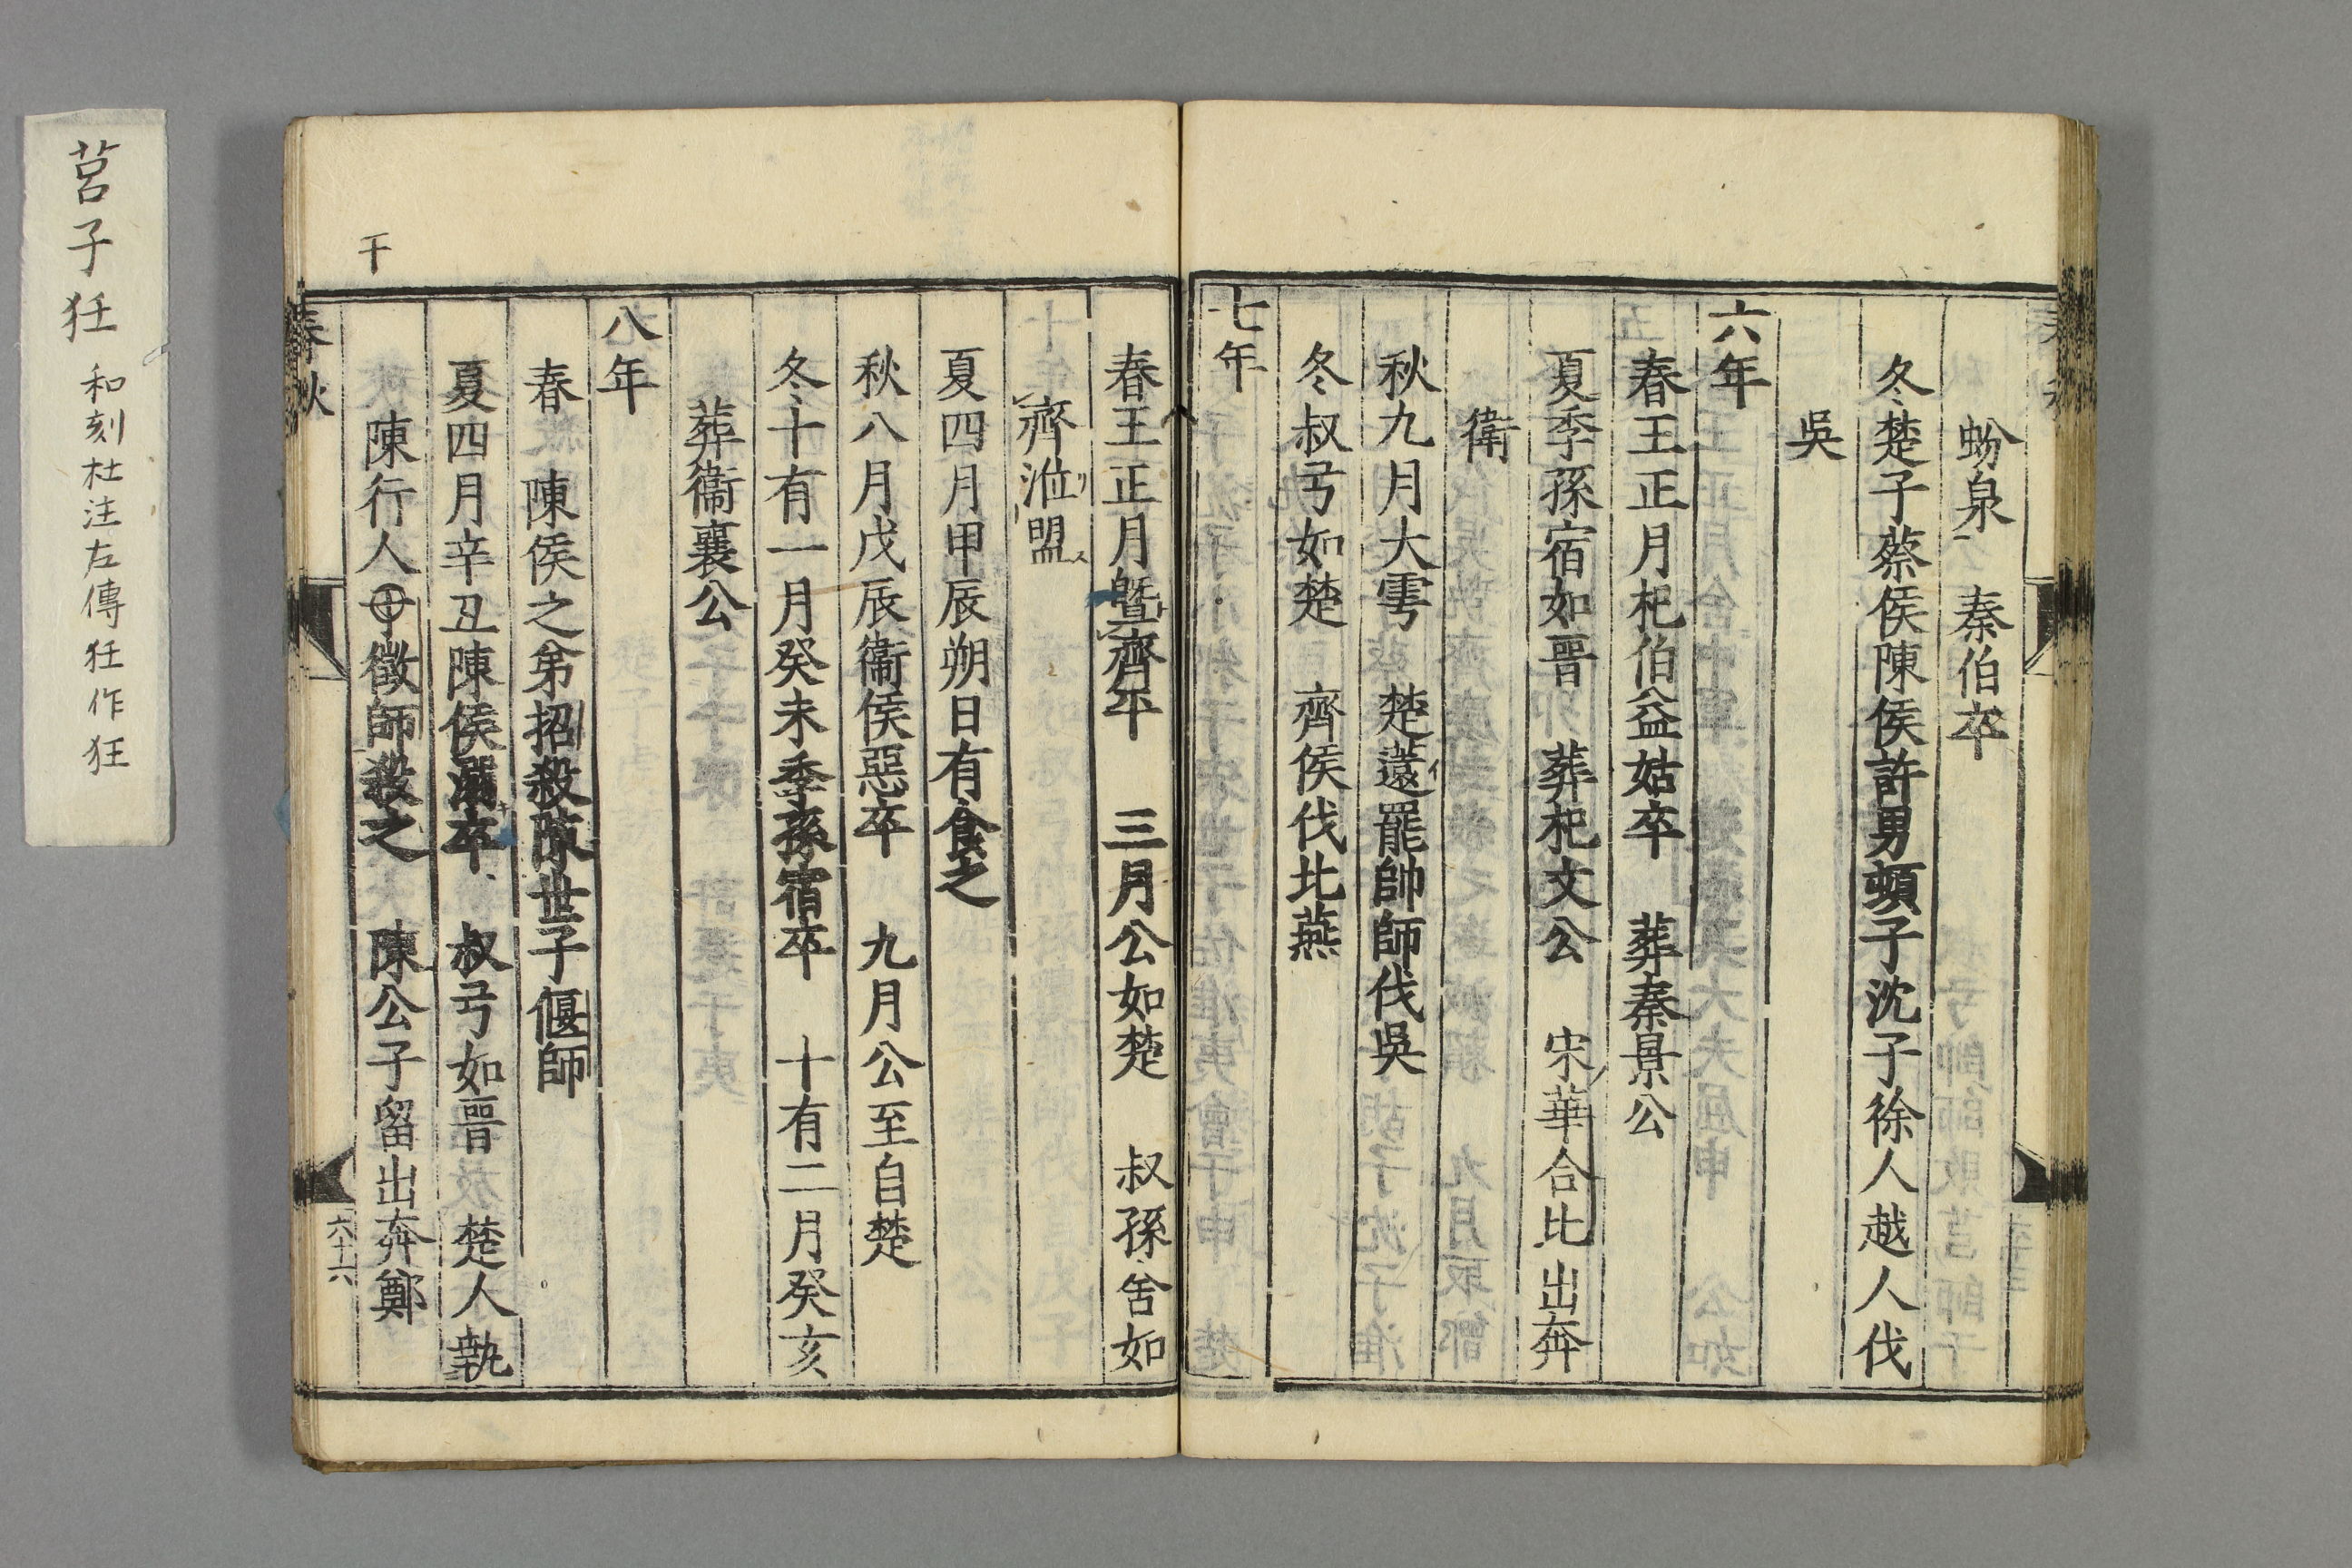 蚡泉　秦伯卒
冬楚子蔡侯陳侯許男頓子沈子徐人越人伐
吳
六年
春王正月杞伯益姑卒　葬秦景公
夏季孫宿如晉　葬杞文公　宋華合比出奔
衛
秋九月大雩　楚薳罷帥師伐吳
冬叔弓如楚　齊侯伐北燕
七年
春王正月曁齊平　三月公如楚　叔孫舍如
齊涖盟
夏四月甲辰朔日有食之
秋八月戊辰衞侯惡卒　九月公至自楚
冬十有一月癸未季孫宿卒　十有二月癸亥
葬衞襄公
八年
春　陳侯之弟招殺陳世子偃師
夏四月辛丑陳侯溺卒　叔弓如晉　楚人執
陳行人徵師殺之　陳公子留出奔鄭
干
春秋
六十六
莒子狂　和刻杜注左傳狂作狂